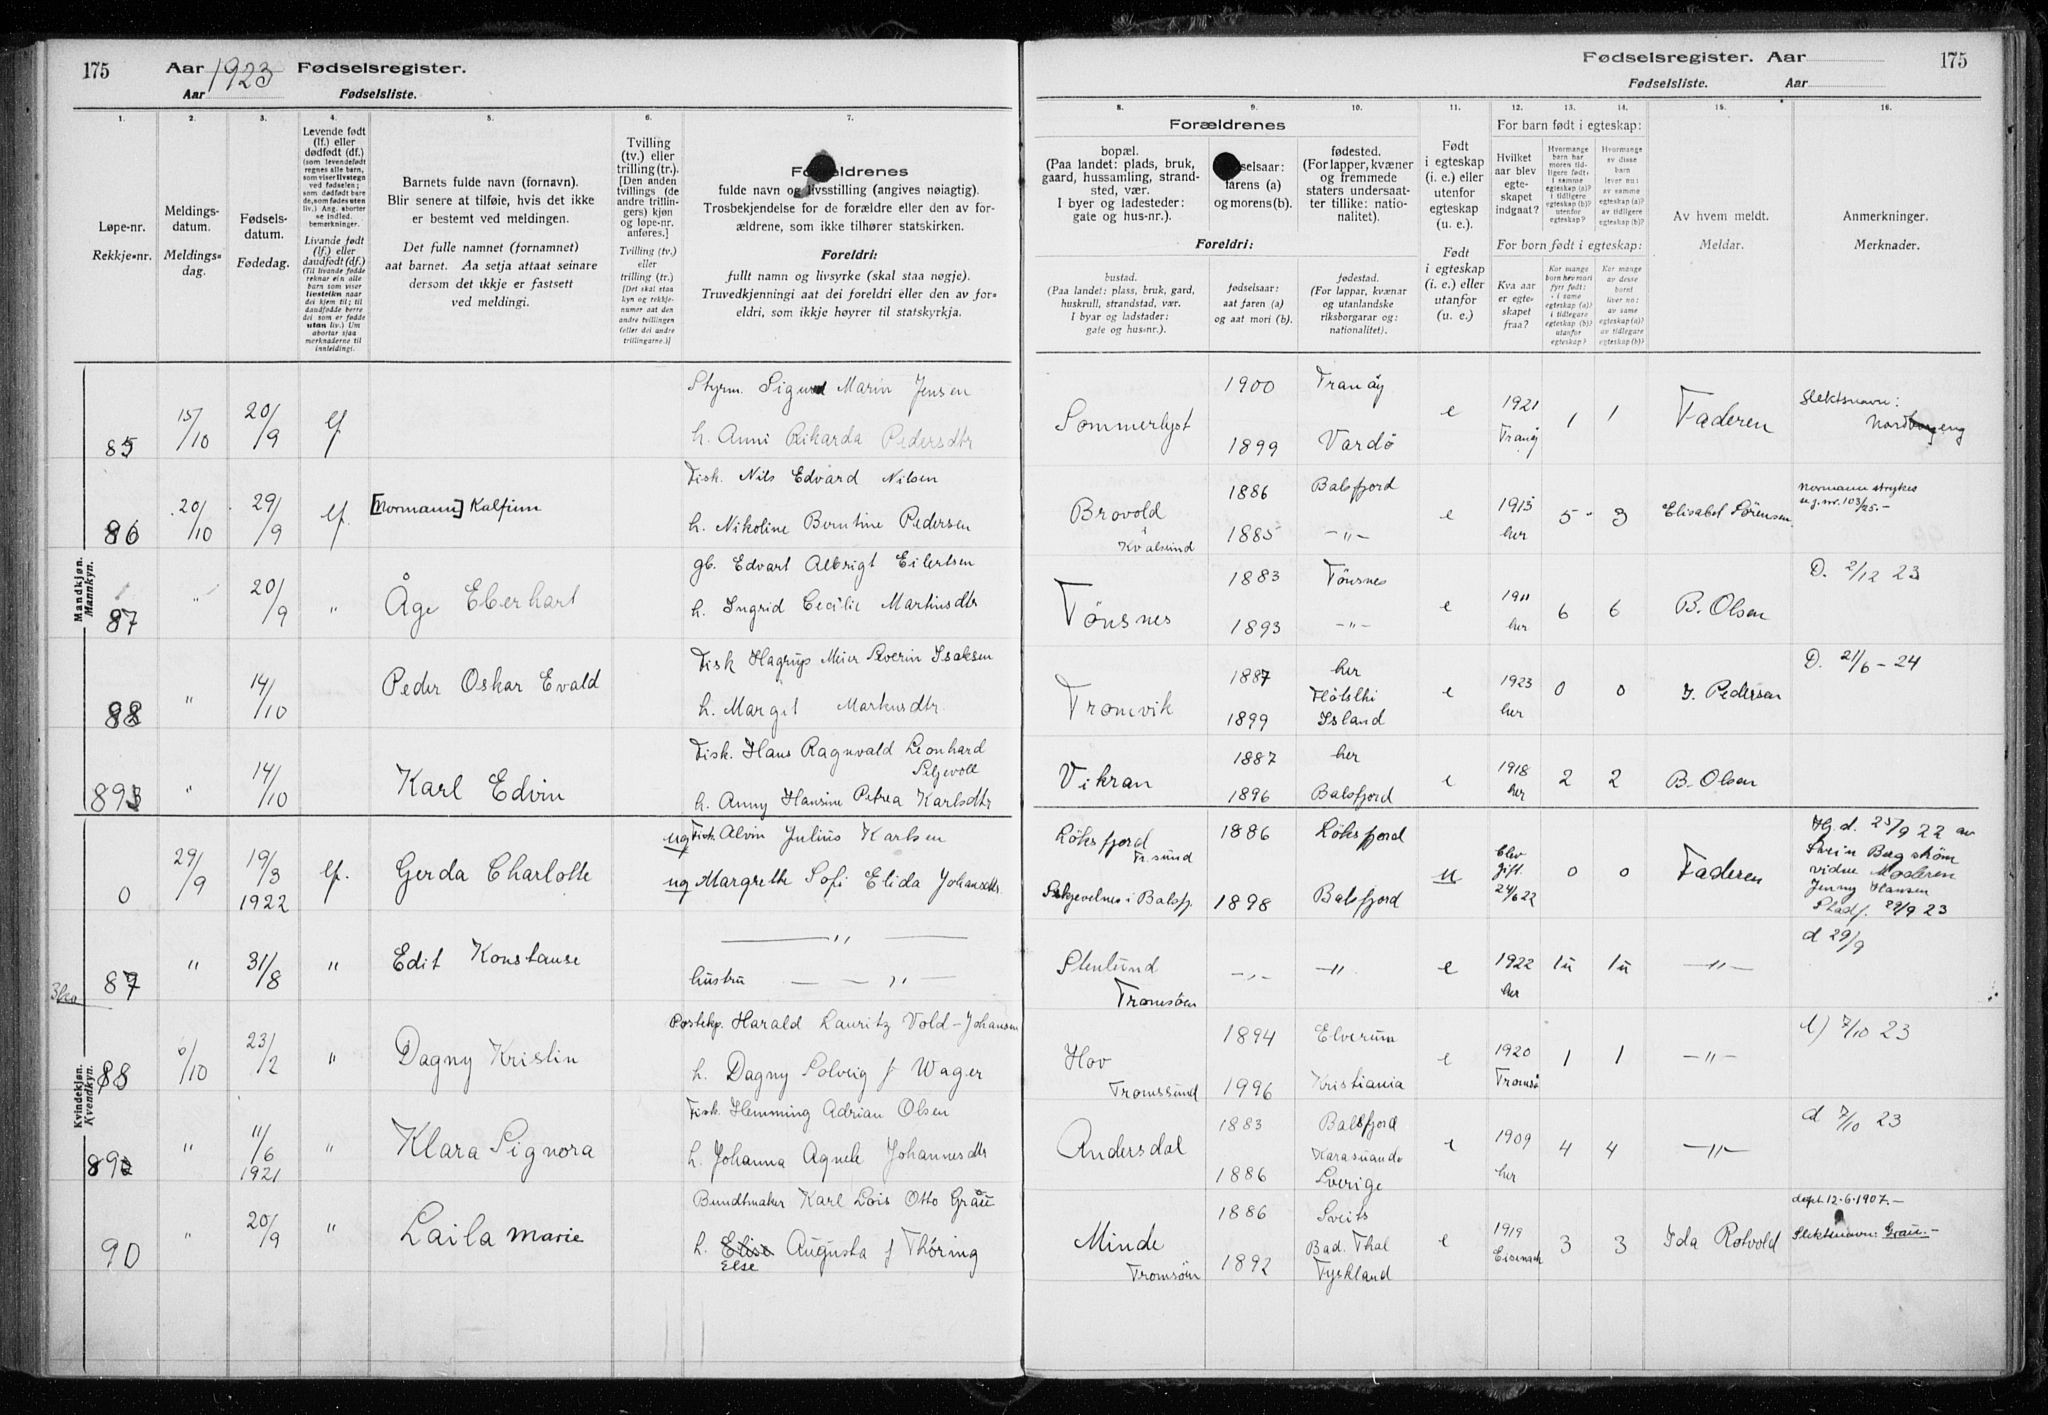 175 Aar 1923 Fødselsregister.
Aar Fødselsliste.
Fødselsregister. Aar 175
Fødselsliste. Aar
1. 2. 3. 4. 5. 6. 7. 8. 9. 10. 11. 12. 13. 14. 15. 16.
Løpe-nr.
Rekkje-nr.
Meldings-
datum.
Meldings-
dag.
Fødsels-
datum.
Fødedag.
Levende født
(lf.) eller
dødfødt (df.)
(som levendefødt
regnes alle barn,
som viser livstegn
ved fødselen;
som dødfødt bare
de, som fødes uten
liv.) Ang. aborter
se indled.
bemerkninger.
Livande fødd
(lf.) eller
daudfødt (df.)
(Til livande fødde
reknar ein alle
born som viser
livsteikn naar
dei kjem til; til
daudfødde berre
dei som er fødde
utan liv.) Um
abortar sjaa
merknaderne til
innleidingi.
Barnets fulde navn (fornavn).
Blir senere at tilføie, hvis det ikke
er bestemt ved meldingen.
Det fulle namnet (fornamnet)
aat barnet. Aa setja attaat seinare
dersom det ikkje er fastsett
ved meldingi.
Tvilling
(tv.) eller
trilling (tr.).
[Den anden
tvillings (de
andre trillin-
gers) kjøn
og løpe-nr.
anføres.]
Tvilling (tv.)
eller
trilling (tr.)
[Det skal staa
kyn og rekkje-
numer aat den
andre tvillingen
(eller dei andre
trillingarne.)]
Forældrenes
fulde navn og livsstilling (angives nøiagtig).
Trosbekjendelse for de forældre eller den av for-
ældrene, som ikke tilhører statskirken.
Foreldri:
fullt namn og livsyrke (skal staa nøgje).
Truvedkjenningi aat dei foreldri eller den av for-
eldri, som ikkje høyrer til statskyrkja.
Forældrenes
bopæl.
(Paa landet: plads, bruk,
gaard, hussamling, strand-
sted, vær.
I byer og ladesteder:
gate og hus-nr.).
farens (a)
og morens (b).
fødested.
(For lapper, kvæner
og fremmede
staters undersaat-
ter tillike: natio-
nalitet).
Foreldri:
bustad.
(Paa landet: plass, bruk, gard,
huskrull, strandstad, vær.
I byar og ladstader:
gate og hus-nr.).
fødselsaar:
aat faren (a)
og aat mori (b).
fødestad.
(For lappar, kvænar
og utanlandske
riksborgarar og:
nationalitet).
Født
i egteskap
(i. e.) eller
utenfor
egteskap
(u. e.).
Født
i egteskap
(i. e.) eller
utanfor
egteskap
(u. e.).
For barn født i egteskap:
Hvilket
aar blev
egte-
skapet
indgaat?
Hvormange
barn har
moren tid-
ligere født:
i samme
egteskap (a)?
i tidligere
egteskap (b)?
utenfor
egteskap?
Hvormange
av disse
barn
lever nu:
av samme
egteskap (a)?
av tidligere
egteskap (b)?
For born født i egteskap:
Kva aar
er egte-
skapet
fraa?
Kor mange
born hev mori
fyrr født:
i same
egteskap (a)?
i tidlegare
egteskap (b)?
utanfor
egteskap?
Kor mange
av desse
born
liver no:
av same
egteskap (a)?
av tidlegare
egteskap (b)?
Av hvem meldt.
Meldar.
Anmerkninger.
Merknader.
Mandkjøn.
Mannkyn.
85 15/10 20/9 lf Styrm. Sigurd Marin Jensen
h. Anni Rikarda Pedersdtr
Sommerlyst 1900 Tranøy
1899 Vardø
e 1921 Tranøy 1 1 Faderen Slektsnavn:
86 20/10 29/9 lf. [Normann] Kalfinn Fisk. Nils Edvard Nilsen
h. Nikoline Berntine Pedersen
Brovold i Kvalsund 1886 Balsfjord
1885 -"-
e 1913 her 5 3 Elisabet Sørensen. Normann strykes
u.j.nr. 103/25.-
87 " 20/9 " Åge Eberhart gb. Edvart Albrigt Eilertsen
h. Ingrid Cecilie Martinsdtr
Tønsnes 1883 Tønsnes
1893 -"-
e 1911 her 6 6 B. Olsen D. 2/12 23
88 " 14/10 Peder Oskar Evald Fisk Hagrup Meier Severin Isaksen
h. Margit Markusdtr.
Tromvik 1887 her
1899 Island
e 1923 her 0 0 J. Pedersen D. 21/6 - 24
89 " 14/10 Karl Edvin Fisk. Hans Ragnvald Leonhard
Seljevoll
h. Anny Hansine Petrea Karlsdtr
Vikran 1887 her
1896 Balsfjord
e 1918 her 2 2 B. Olsen
Kvindekjøn.
Kvendkyn.
0 29/9 19/3 1922 lf. Gerda Charlotte ug Fisk. Alvin Julius Karlsen
ug Margrethe Sofi Elida Johansdtr
Løksfjord Tr.sund 1886 Løksfjord
i Balsfj. 1898 Balsfjord
u Blev gift 24/6 22 0 0 Faderen Hj.d. 25/9 22 av
Svein Bergstrøm
vidne Moderen
Jenny Hansen
Stadf. 29/9 23
87 " 31/8 " Edit Konstanse — " —
hustru — — " —
Stenlund Tromsøen -"- -"-
e 1922 her 1u 1u -"- d 29/9
88 6/10 23/2 " Dagny Kristin Postekp. Harald Lauritz Vold-Johansen
h. Dagny Solveig f Wager
Hov Tromssund 1894 Elverum
1996 Kristiania
e 1920 Tromsø 1 1 -"- d 7/10 23
89 " 11/6 1921 " Klara Signora Fisk. Hemming Adrian Olsen
h. Johanna Agnele Johannesdtr
Andersdal 1883 Balsfjord
1886 Karasuando Sverige
e 1909 her 4 4 -"- d 7/10 23
90 " 20/9 " Laila Marie Bundtmaker Karl Lois Otto Grau
h. Elise Augusta f Thöring
Else
Minde Tromsøen 1886 Sveits
1892 Bad. Thal Tyskland
e 1919 Eisenach 3 3 Ida Rotvold dept. 12.6.1907.-
Slektsnavn: Grau.-